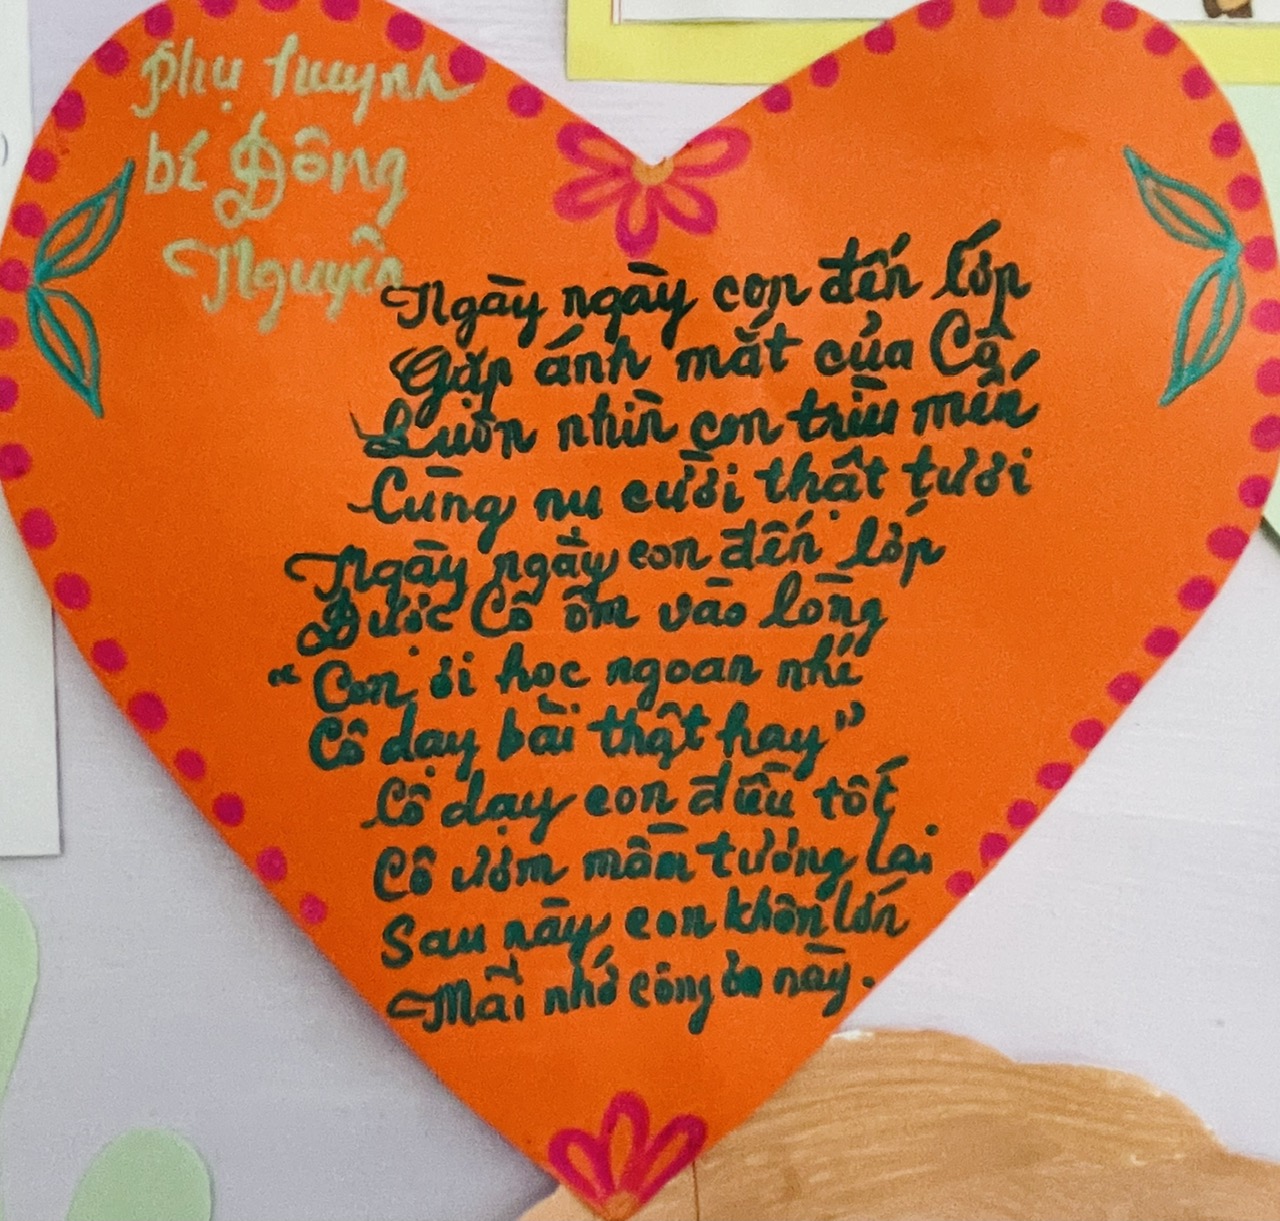 Phụ huynh
bé Đông
Nguyên
Ngày ngày con đến lớp
Gặp ánh mắt của Cô
Luôn nhìn con trìu mến
Cùng nụ cười thật tươi
Ngày ngày con đến lớp
Được Cô ôm vào lòng
"Con ơi học ngoan nhé
Cô dạy bài thật hay"
Cô dạy con điều tốt
Cô ươm mầm tương lai
Sau này con khôn lớn
Mãi nhớ công ơn này.